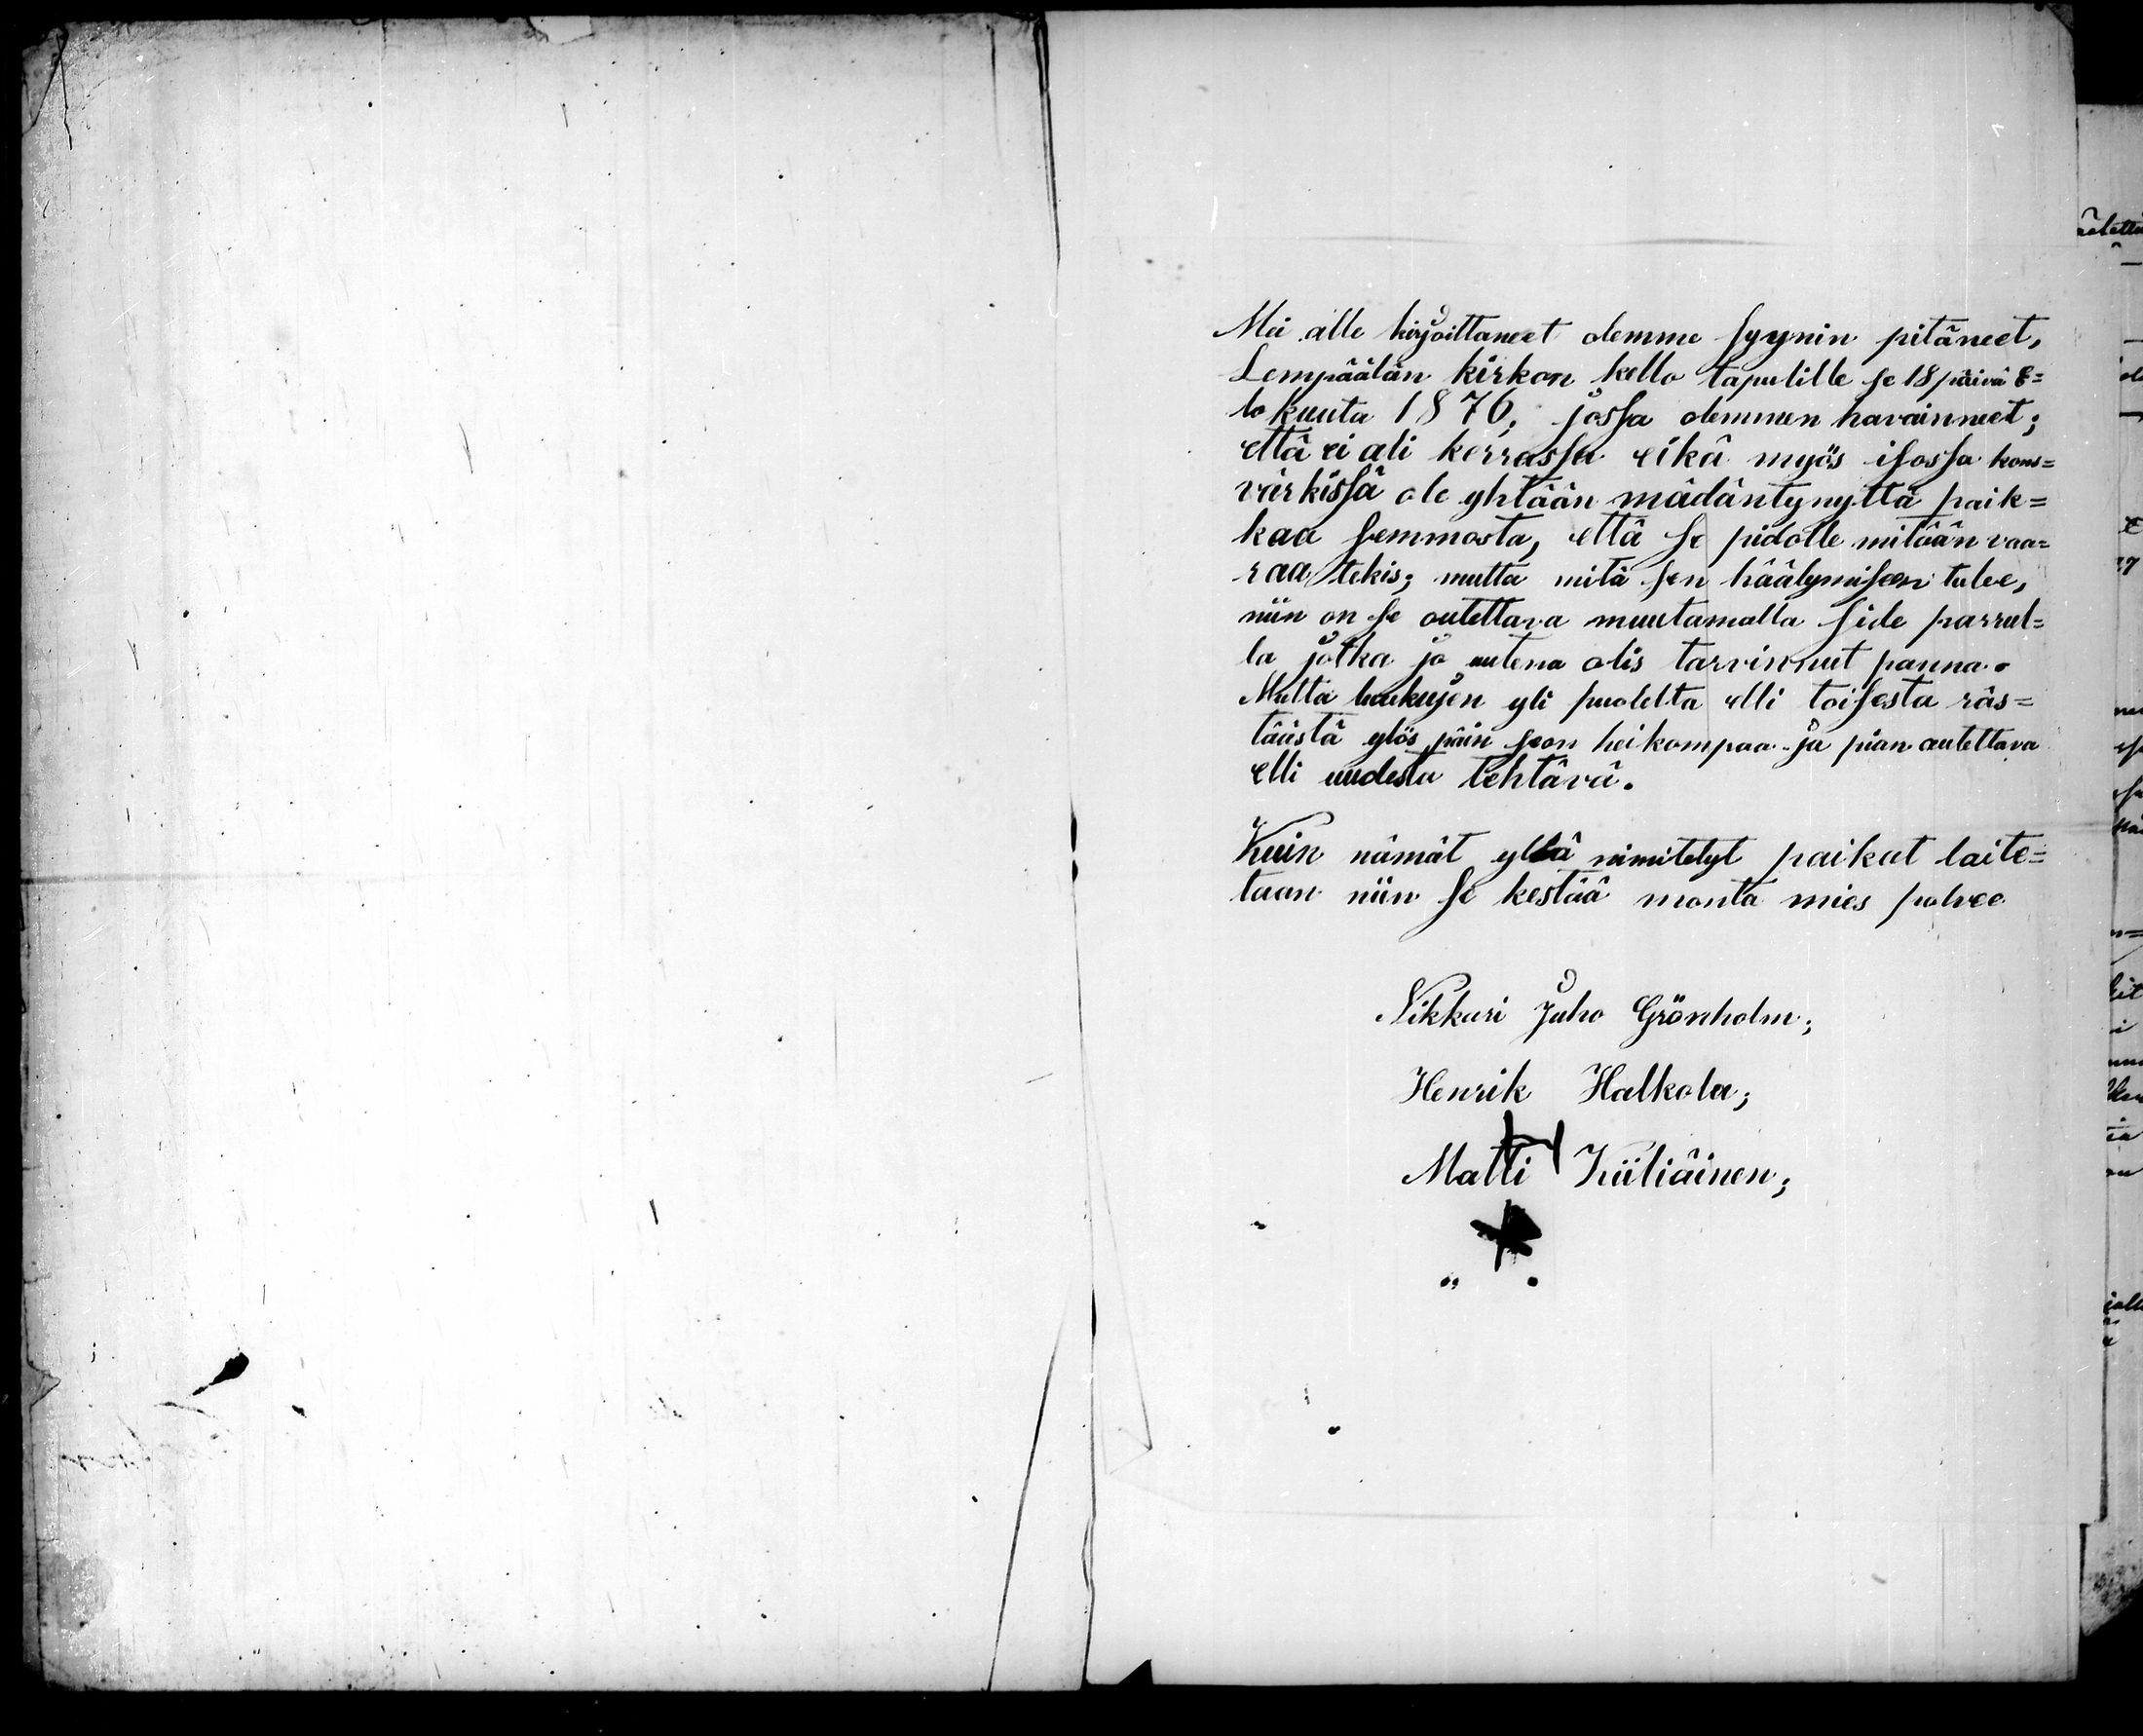 Mei alle kirjoittaneet olemme syynin pitäneet,
Lempäälän kirkon kello tapulille se 18 päivä E=
lo kuuta 1876, jossa olemmen havainneet;
että ei ali kerrassa eikä myös isossa kons=
värkissä ole yhtään mädäntynyttä paik=
kaa semmosta, että se pidolle mitään vaa=
raa tekis; mutta mitä sen häälymisen tulee,
niin on se autettava muutamalla side parrul=
la jotka jo autena olis tarvinnut panna.
Mutta luukujen yli puolelta elli toisesta räs=
täästä ylös päin se on heikompaa ja pian autettava
elli uudesta tehtävä.
Kuin nämät yllä nimitetyt paikat laite=
taan niin se kestää monta mies polvee
Nikkari Juho Grönholm;
Henrik Halkola;
Matti Kiiliäinen;